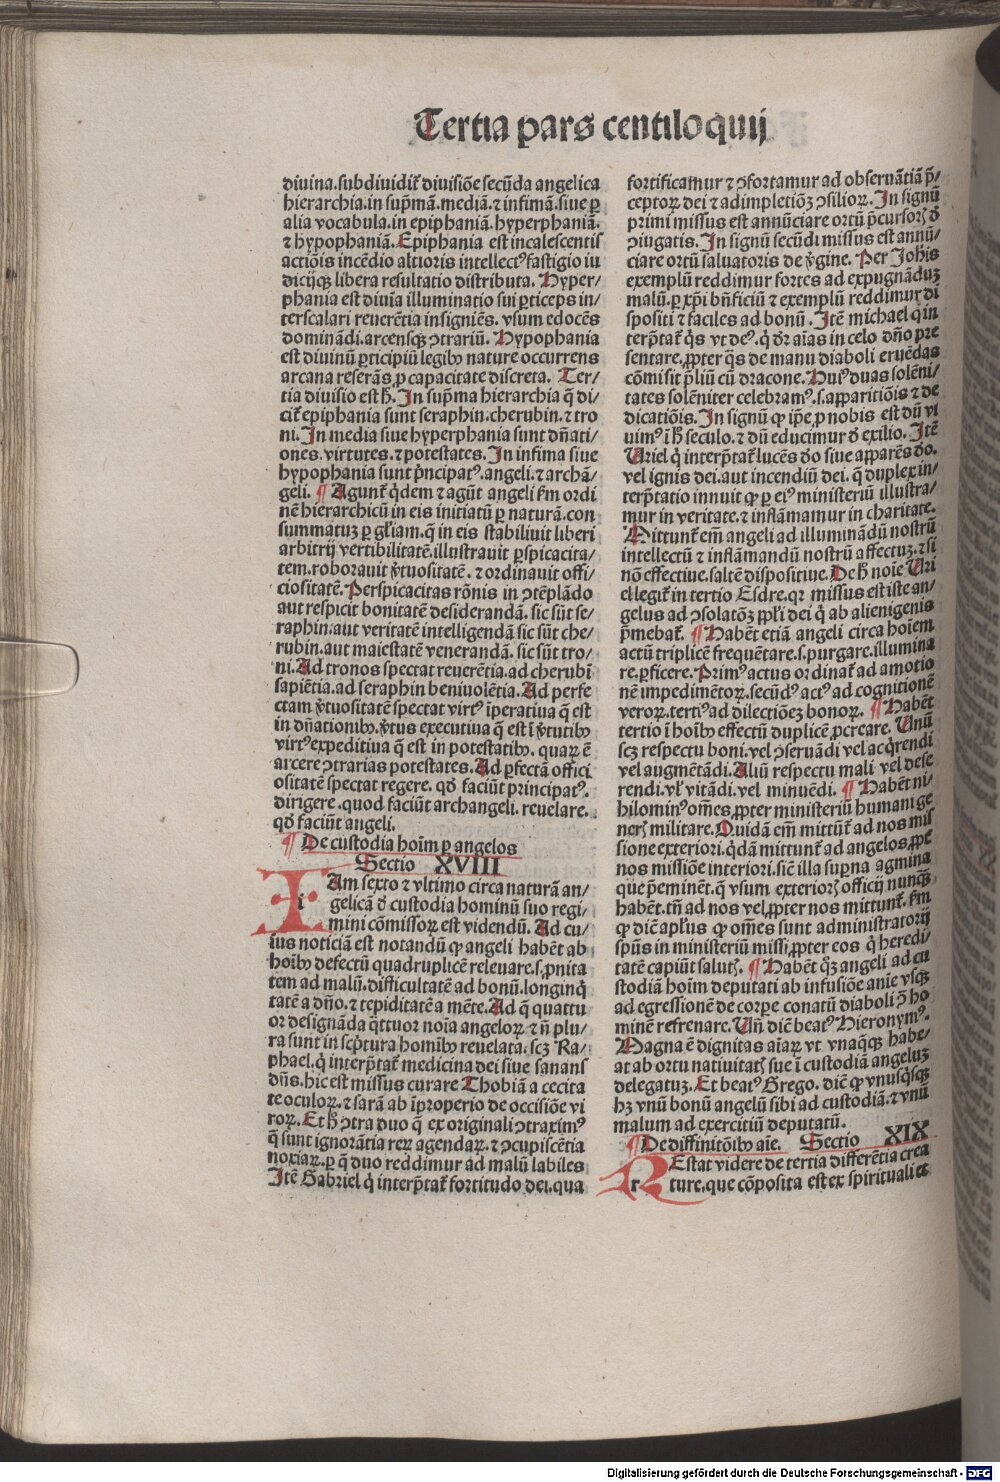 Tertia pars centiloquij
diuina.subdiuidit᷑ diuisiōe secūda angelica
hierarchia.in sup̄mā.mediā.⁊ infimā.siue ꝑ
alia vocabula.in epiphaniā.hyperphaniā.
⁊ hypophaniā. Epiphania est incalescentis
actiōis incēdio altioris intellectꝰ fastigio iu
dicijqꝫ libera resultatio distributa. Hyper-
phania est diuīa illuminatio sui ꝑticeps in-
terscalari reuerētia insigniēs. vsum edocēs
dominādi.arcensqꝫ ↄtrariū. Hypophania
est diuinū ꝑticipiū legibꝫ nature occurrens
arcana reserās ꝓ capacitate discreta. Ter-
tia diuisio est h̄. In sup̄ma hierarchia q̄ di-
cit᷑ epiphania sunt seraphin.cherubin.⁊ tro
ni. In media siue hyperphania sunt dn̄ati-
ones.virtutes.⁊ potestates. In infima siue
hypophania sunt p̄ncipatꝰ.angeli.⁊ archā-
geli. ¶ Agunt᷑ q̇dem ⁊ agūt angeli ẜm ordi
nē hierarchicū in eis initiatū ꝑ naturā.con
summatuꝫ ꝑ gl̄iam.q̄ in eis stabiliuit liberi
arbitrij vertibilitatē.illustrauit ꝑspicacita-
tem.roborauit v̄tuositatē.⁊ ordinauit offi-
ciositatē. Perspicacitas rōnis in ↄtēplādo
aut respicit bonitatē desiderandā.sic sūt se-
raphin:aut veritatē intelligendā sic sūt che-
rubin.aut maiestatē venerandā.sic sūt tro-
ni. Ad tronos spectat reuerētia.ad cherubī
sapiētia.ad seraphin beniuolētia. Ad perfe
ctam v̄tuositatē spectat virtꝰ īperatiua q̄ est
in dn̄ationibꝫ.v̄tus executiua q̄ est ī v̄tutibꝫ
virtꝰ expeditiua q̄ est in potestatibꝫ. quaꝝ ē
arcere ↄtrarias potestates. Ad ꝑfectā offici
ositatē spectat regere. qd̄ faciūt principatꝰ.
dirigere.quod faciūt archangeli.reuelare.
qd̄ faciūt angeli.
¶ De custodia hoīm ꝑ angelos
Sectio XVIII
IAm sexto ⁊ vltimo circa naturā an-
gelicā d̄ custodia hominū suo regi-
mini cōmissoꝝ est videndū. Ad cu-
ius noticiā est notandū ꝙ angeli habēt ab
hoībꝫ defectū quadruplicē releuare.s.ꝓnita
tem ad malū.difficultatē ad bonū.longinq̇
tatē a dn̄o.⁊ tepiditatē a mēte. Ad q̄ quattu
or designāda q̄ttuor noīa angeloꝝ ⁊ nō plu-
ra sunt in scp̄tura homībꝫ reuelata.scꝫ Ra-
phael.q̇ interp̄tat᷑ medicina dei siue sanans
dn̄s.hic est missus curare Thobiā a cecita
te oculoꝝ.⁊ sarā ab īproperio de occisiōe vi
roꝝ. Et h̄ ↄtra duo q̄ ex originali ↄtraximꝰ
q̄ sunt ignorātia reꝝ agendaꝝ.⁊ ↄcupiscētia
noxiaꝝ.ꝑ q̄ duo reddimur ad malū labiles
Itē Gabriel q̇ interp̄tat᷑ fortitudo dei.qua
fortificamur ⁊ ↄfortamur ad obseruātiā p̄-
ceptoꝝ dei ⁊ adimpletiōꝫ ↄsilioꝝ. In signū
primi missus est annūciare ortū p̄cursoris d̄
ↄiugatis. In signū secūdi missus est annū-
ciare ortū saluatoris de v̄gine. Per Joh̄is
exemplū reddimur fortes ad expugnāduꝫ
malū.ꝑ xp̄i bn̄ficiū ⁊ exemplū reddimur di
spositi ⁊ faciles ad bonū. Itē michael q̇ in
terp̄tat᷑ q̇s vt deꝰ. q̇ dr̄ aīas in celo dn̄o pre
sentare.ꝓpter q̄s de manu diaboli eruēdas
cōmisit p̄liū cū dracone. Huiꝰ duas solēni-
tates solēniter celebramꝰ.s.apparitiōis ⁊ de
dicatiōis. In signū ꝙ ip̄e ꝓ nobis est dū vi
uimꝰ ī h̄ seculo.⁊ dū educimur d̄ exilio. Itē
Uriel q̇ interp̄tat᷑ lucēs do siue apparēs do.
vel ignis dei.aut incendiū dei. q̄ duplex in-
terp̄tatio innuit ꝙ ꝑ eiꝰ ministeriū illustra-
mur in veritate.⁊ inflāmamur in charitate.
Mittunt᷑ em̄ angeli ad illuminādū nostrū
intellectū ⁊ inflāmandū nostrū affectuꝫ.⁊ si
nō effectiue.saltē dispositiue. De h̄ noīe Uri
el legit᷑ in tertio Esdre.qꝛ missus est iste an-
gelus ad ↄsolatōꝫ pp̄li dei q̇ ab alienigenis
p̄mebat᷑. ¶ Habēt etiā angeli circa hoīem
actū triplicē frequētare.s.purgare.illumina
re.ꝑficere. Primꝰ actus ordinat᷑ ad amotio
nē impedimētoꝝ.secūdꝰ actꝰ ad cognitionē
veroꝝ.tertiꝰ ad dilectiōeꝫ bonoꝝ. ¶ Habēt
tertio ī hoībꝫ effectū duplicē ꝓcreare. Unū
scꝫ respectu boni.vel ↄseruādi vel acq̇rendi
vel augmētādi. Aliū respectu mali vel dese
rendi.vl̓ vitādi.vel minuēdi. ¶ Habēt ni-
hilominꝰ om̄es ꝓpter ministeriū humani ge
neris militare. Quidā em̄ mittūt᷑ ad nos mis
sione exteriori.q̇dā mittunt᷑ ad angelos ꝓpt̄
nos missiōe interiori.sic̄ illa suꝑna agmina
que p̄eminēt.q̄ vsum exterioris officij nunqꝫ
habēt.tn̄ ad nos vel ꝓpter nos mittunt᷑. ẜm
ꝙ dic̄ apl̄us ꝙ om̄es sunt administratorij
sp̄us in ministeriū missi ꝓpter eos q̇ heredi-
tatē capiūt salutis. ¶ Habēt q̇ꝫ angeli ad cu
stodiā hoīm deputati ab infusiōe anīe vsqꝫ
ad egressionē de corꝑe conatū diaboli ↄ̄ ho
minē refrenare. Un̄ dic̄ beatꝰ Hieronymꝰ.
Magna ē dignitas aīaꝝ vt vnaqꝫqꝫ habe-
at ab ortu natiuitatis sue ī custodiā angeluꝫ
delegatuꝫ. Et beatꝰ Grego. dic̄ ꝙ vnusq̇sqꝫ
hꝫ vnū bonū angelū sibi ad custodiā.⁊ vnū
malum ad exercitiū deputatū.
¶ De diffinitōibꝫ aīe. Sectio XIX
REstat videre de tertia differētia crea
ture.que cōposita est ex spirituali et
Digitalisierung gefördert durch die Deutsche Forschungsgemeinschaft - DFG